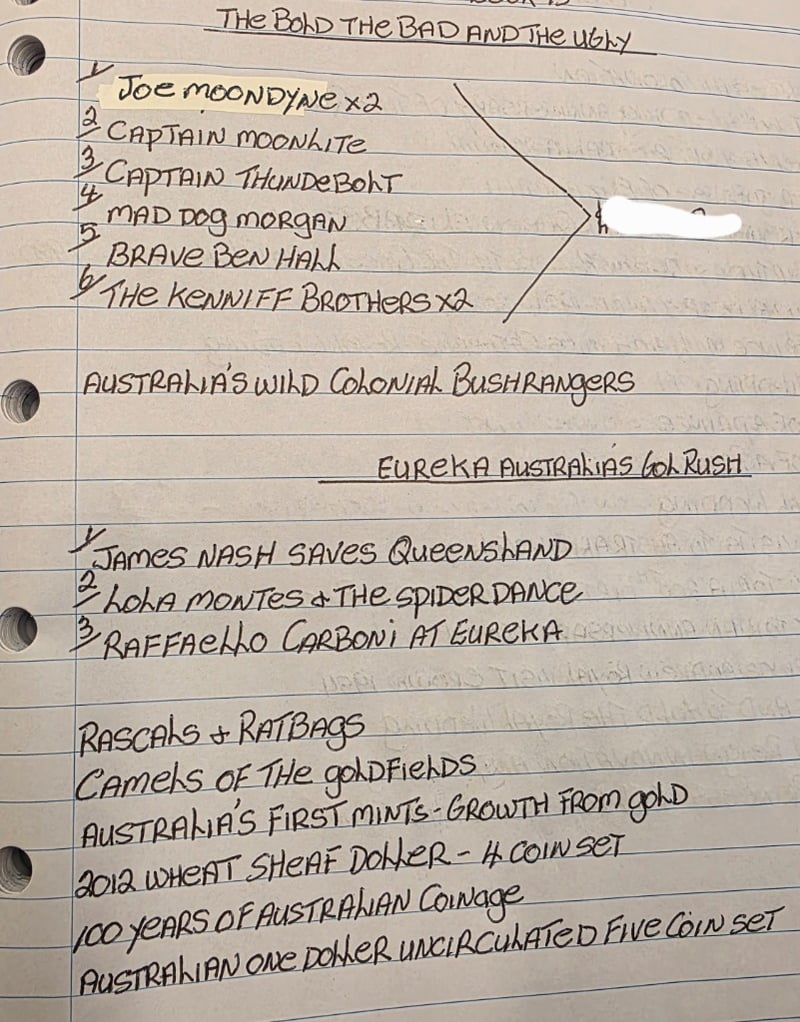 THE BOLD THE BAD AND THE UGLY
1 JOE MOONDYNE x2
2 CAPTAIN MOONLITE
3 CAPTAIN THUNDEBOLT
4 MAD DOG MORGAN
5 BRAVE BEN HALL
6 THE KENNIFF BROTHERS x2
AUSTRALIA'S WILD COLONIAL BUSHRANGERS
EUREKA AUSTRALIA'S GOL RUSH
1 JAMES NASH SAVES QUEENSLAND
2 LOLA MONTES & THE SPIDER DANCE
3 RAFFAELLO CARBONI AT EUREKA
RASCALS & RATBAGS
CAMELS OF THE GOLDFIELDS
AUSTRALIA'S FIRST MINTS - GROWTH FROM GOLD
2012 WHEAT SHEAF DOLLER - 4 COIN SET
100 YEARS OF AUSTRALIAN COINAGE
AUSTRALIAN ONE DOLLER UNCIRCULATED FIVE COIN SET